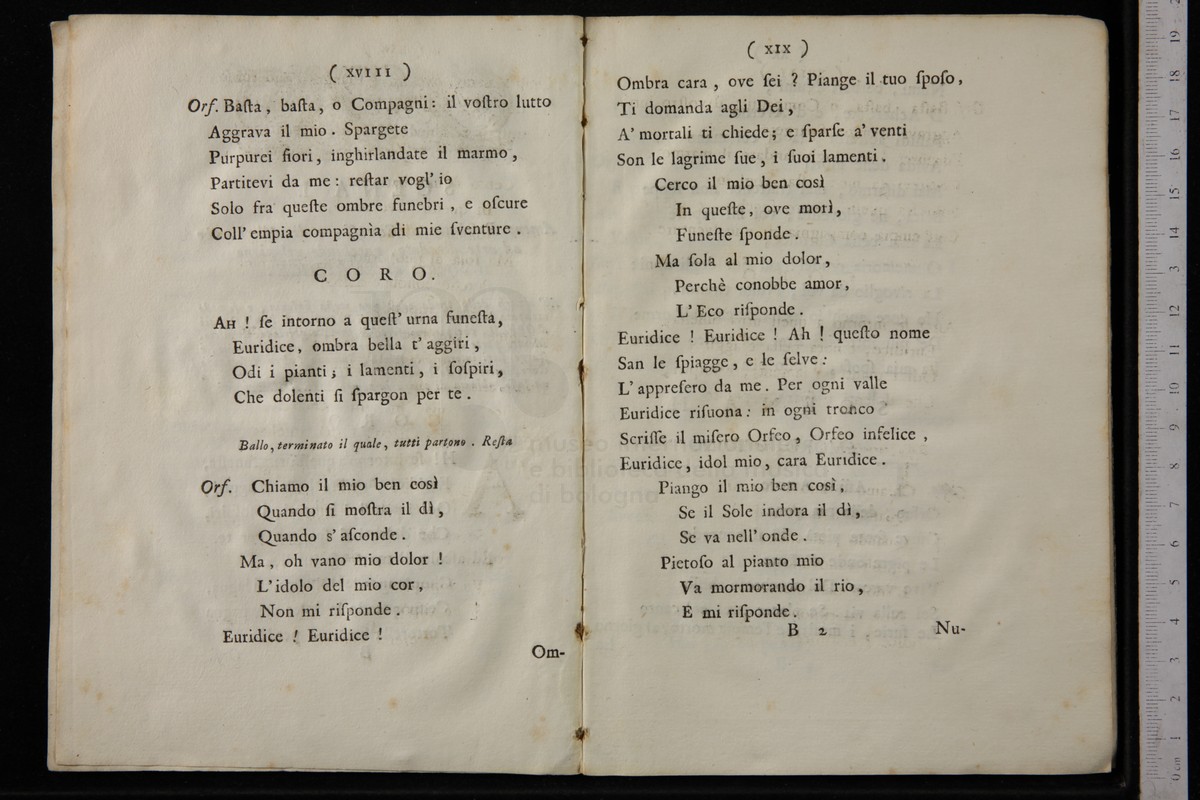 ( XVIII )
Orf. Baſta, baſta, o Compagni: il voſtro lutto
Aggrava il mio. Spargete
Purpurei fiori, inghirlandate il marmo,
Partitevi da me: reſtar vogl' io
Solo fra queſte ombre funebri, e oſcure
Coll' empia compagnia di mie ſventure.
CORO.
AH! ſe intorno a queſt' urna funeſta,
Euridice, ombra bella t' aggiri,
Odi i pianti; i lamenti, i ſoſpiri,
Che dolenti ſi ſpargon per te.
Ballo, terminato il quale, tutti partono. Reſta
Orf. Chiamo il mio ben così
Quando ſi moſtra il dì,
Quando s' aſconde.
Ma, oh vano mio dolor!
L' idolo del mio cor,
Non mi riſponde.
Euridice! Euridice!
Om-
( XIX )
Ombra cara, ove ſei? Piange il tuo ſpoſo,
Ti domanda agli Dei,
A' mortali ti chiede; e ſparſe a' venti
Son le lagrime ſue, i ſuoi lamenti.
Cerco il mio ben così
In queſte, ove morì,
Funeſte ſponde.
Ma ſola al mio dolor,
Perchè conobbe amor,
L' Eco riſponde.
Euridice! Euridice! Ah! queſto nome
San le ſpiagge, e le ſelve:
L' appreſero da me. Per ogni valle
Euridice riſuona: in ogni tronco
Scriſſe il miſero Orfeo, Orfeo infelice,
Euridice, idol mio, cara Euridice.
Piango il mio ben così,
Se il Sole indora il dì,
Se va nell' onde.
Pietoſo al pianto mio
Va mormorando il rio,
E mi riſponde.
B 2 Nu-
museo
e biblioteca
di bologna
0 cm 1 2 3 4 5 6 7 8 9 10 11 12 13 14 15 16 17 18 19